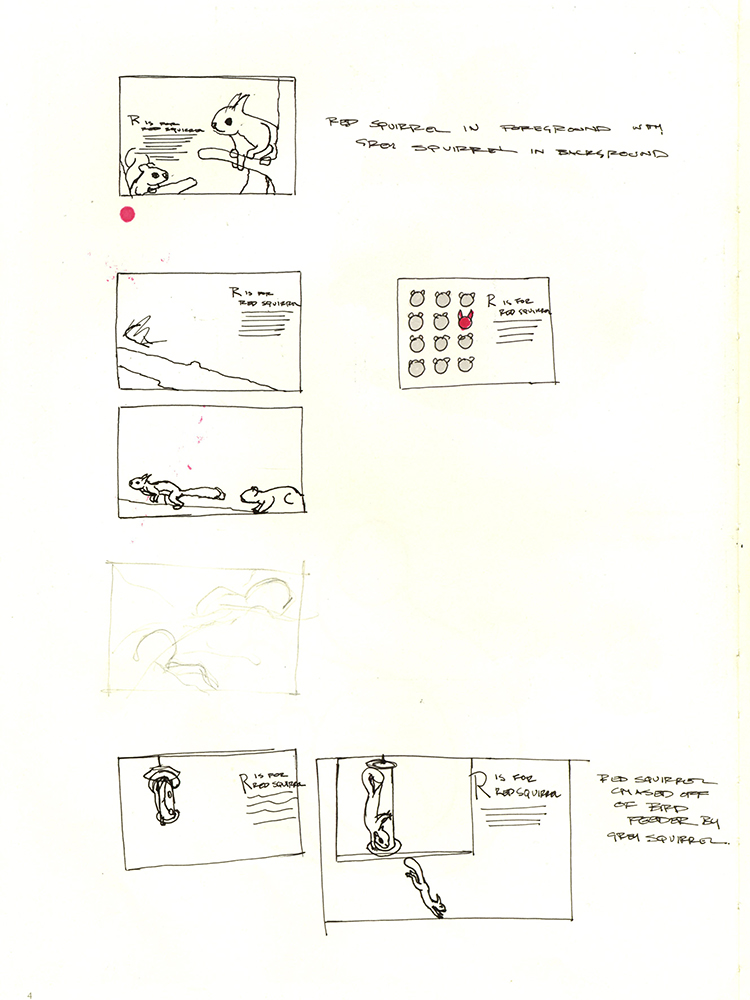 R IS FOR
RED SQUIRREL
RED SQUIRREL IN FOREGROUND WITH
GREY SQUIRREL IN BACKGROUND
R IS FOR
RED SQUIRREL
R IS FOR
RED SQUIRREL
R IS FOR
RED SQUIRREL
R IS FOR
RED SQUIRREL
RED SQUIRREL
CHASED OFF
OF BIRD
FEEDER BY
GREY SQUIRREL.
4